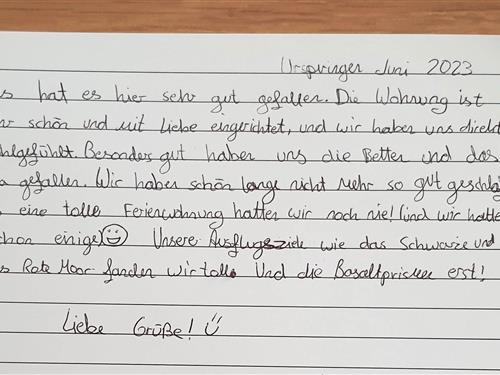 Urspringer Juni 2023
s hat es hier sehr gut gefallen. Die Wohnung ist
r schön und mit Liebe eingerichtet, und wir haben uns direkt
hlgefühlt. Besonders gut haben uns die Betten und das
a gefallen. Wir haben schon lange nicht mehr so gut geschla
eine tolle Ferienwohnung hatten wir noch nie! (und wir hatte
chon einige) Unsere Ausflugsziele wie das Schwarze und
s Rote Moor fanden wir toll. Und die Basaltprismen erst!
Liebe Grüße!